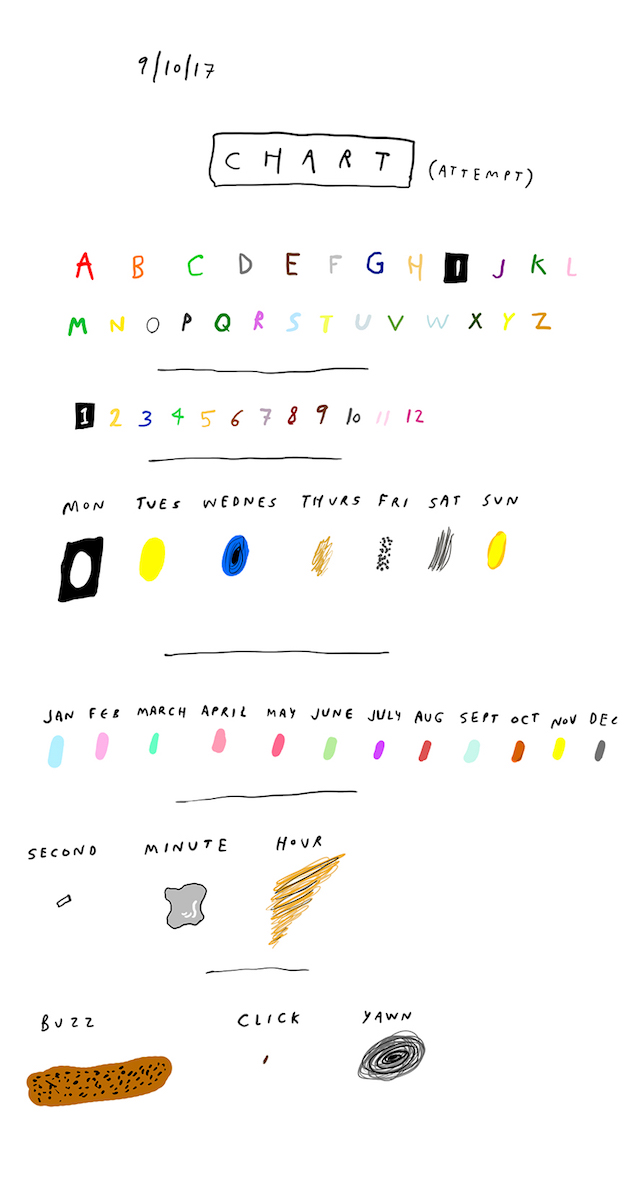 9/10/17
CHART (ATTEMPT)
A B C D E F G H I J K L
M N O P Q R S T U V W X Y Z
1 2 3 4 5 6 7 8 9 10 11 12
MON TUES WEDNES THURS FRI SAT SUN
JAN FEB MARCH APRIL MAY JUNE JULY AUG SEPT OCT NOV DEC
SECOND MINUTE HOUR
BUZZ CLICK YAWN